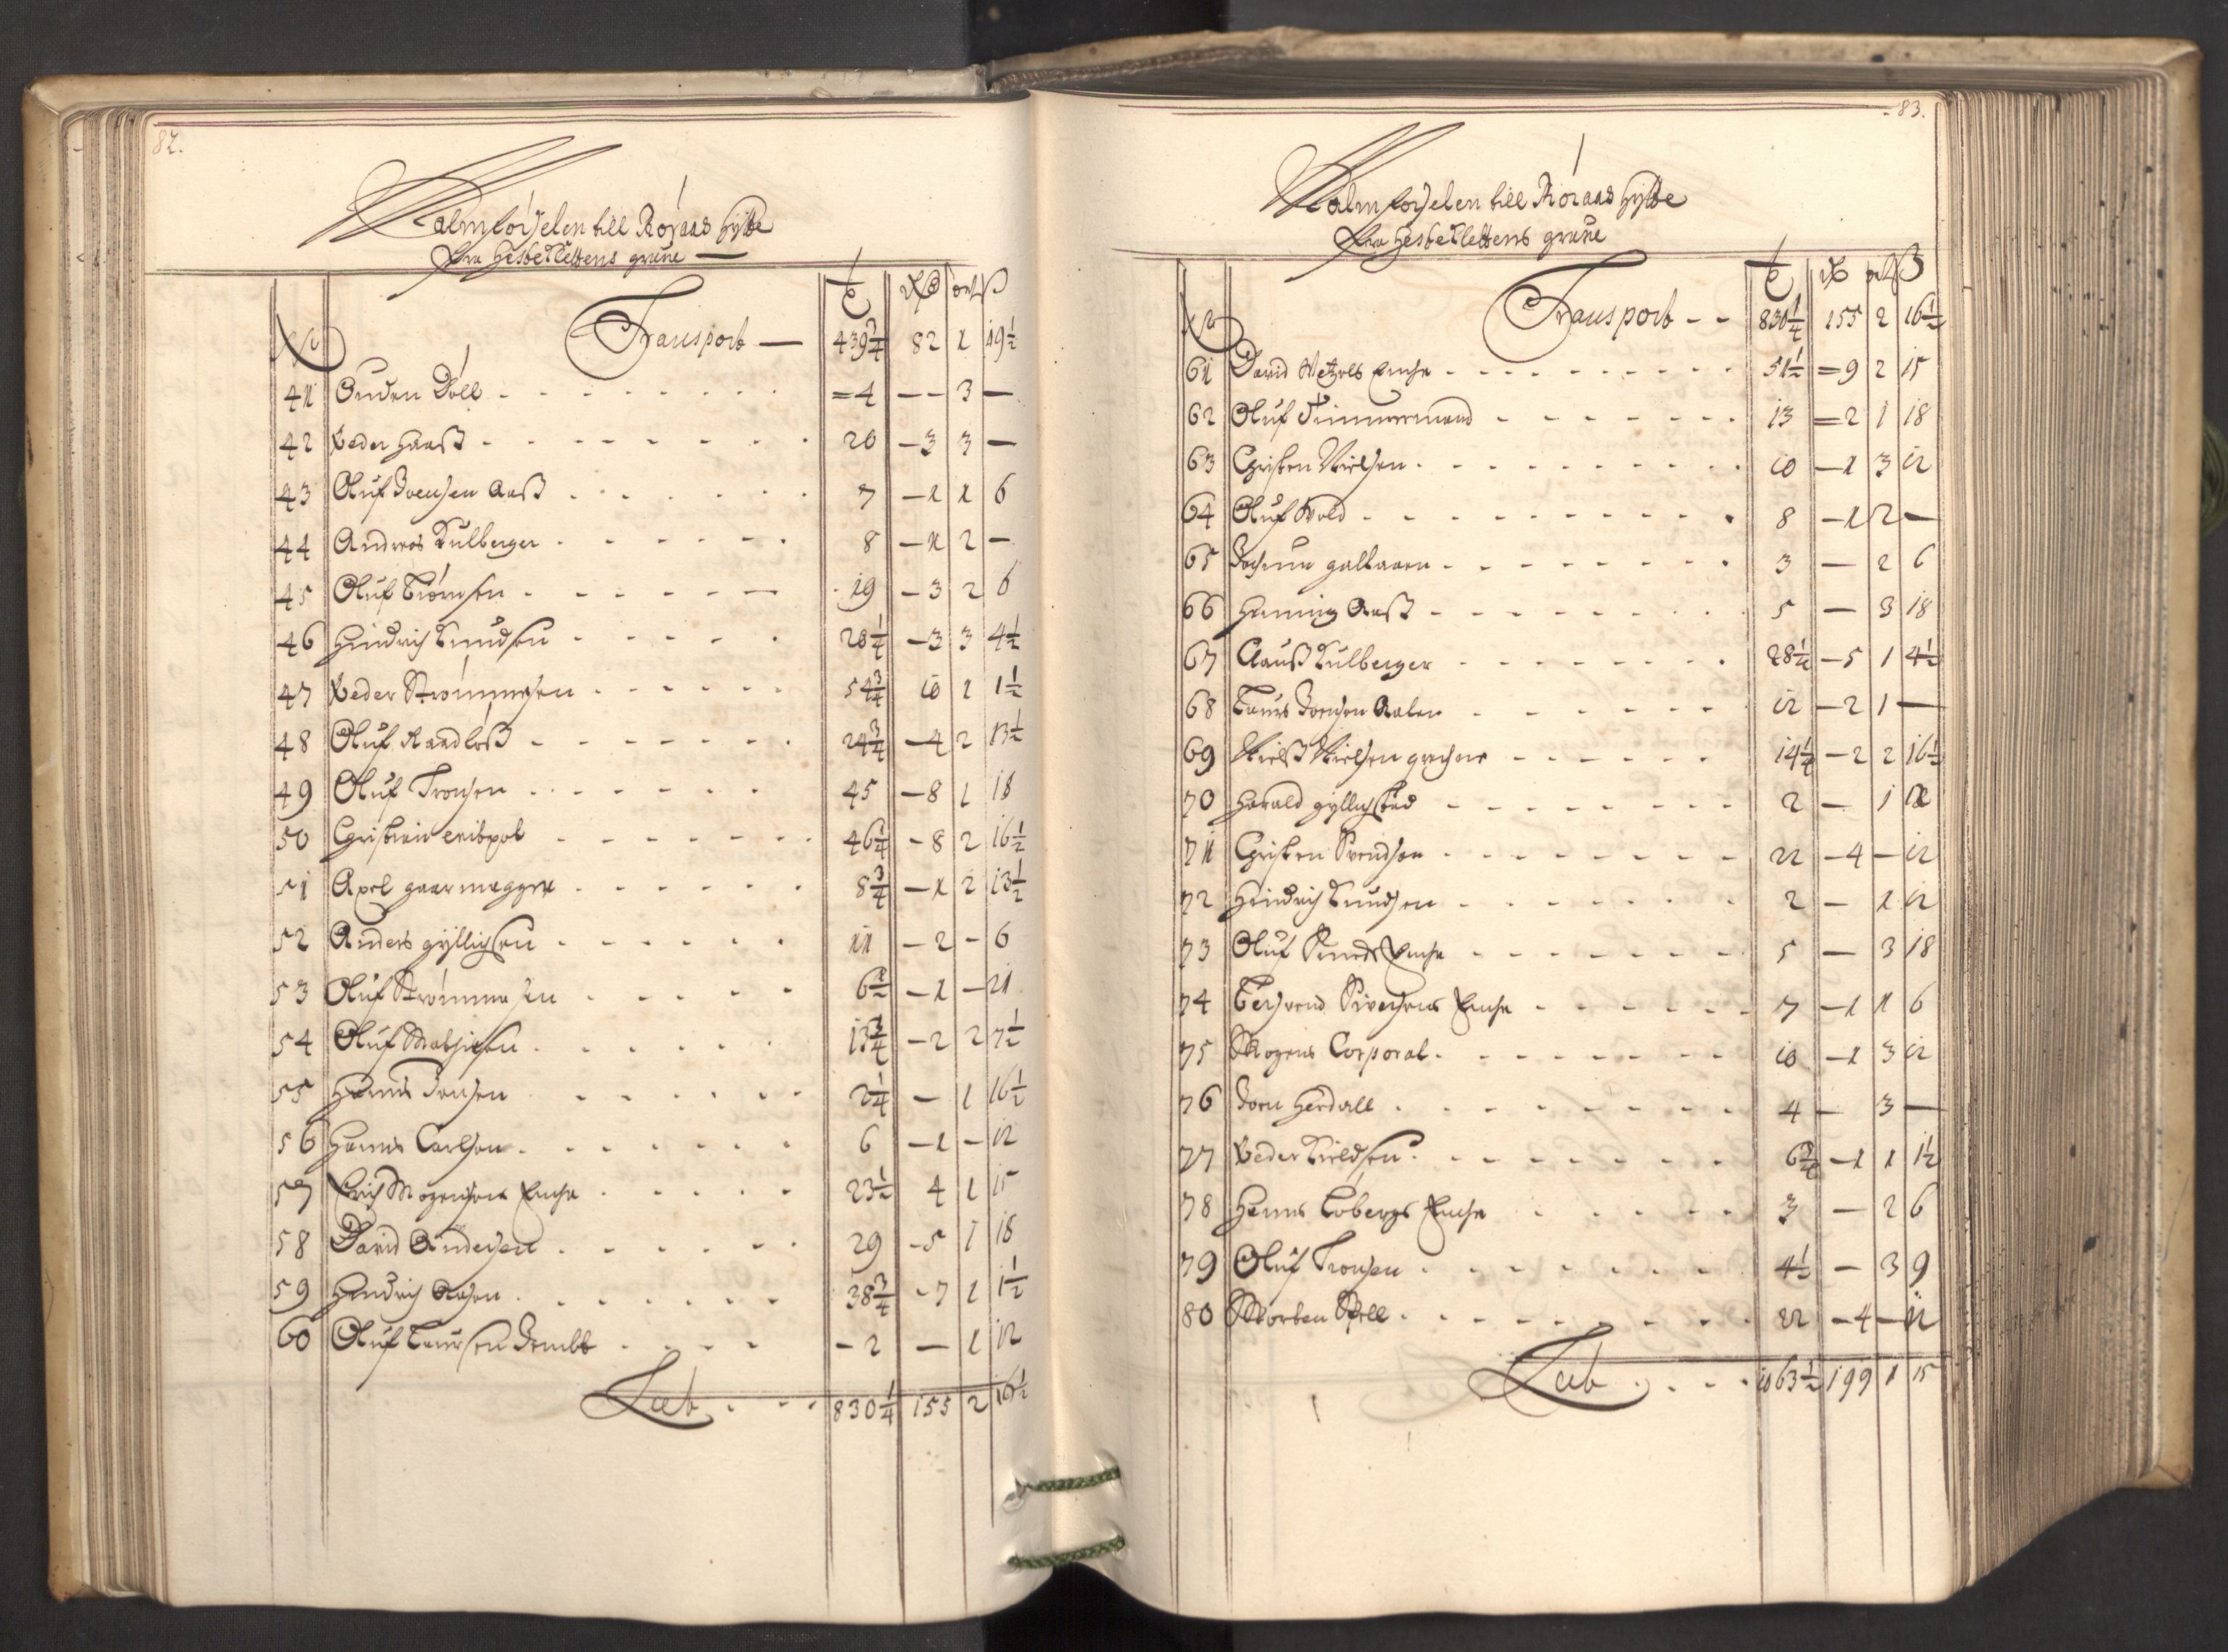 82.
Malmförselen till Röraas Hÿtte
fra Hesteklettens grúúe —
No tr Rd ort ß
Transport — 439 3/4 82 1 19 1/2
41 Ouden Döll =4 -- 3 —
42 Peder Haaß 20 — 3 3 —
43 Oluf Joensen Aaß 7 — 1 1 6
44 Andreas Kulberger 8 — 1 2 —
45 Oluf Biörnsen 19 — 3 2 6
46 Hindrich Knudsen 20 1/4 — 3 3 4 1/2
47 Peder Strömmesen 54 3/4 10 1 1 1/2
48 Oluf Randlöß 24 3/4 — 4 2 13 1/2
49 Oluf Tronsen 45 — 8 1 18
50 Christian 46 1/4 — 8 2 16 1/2
51 Axel gaarmagger 8 3/4 — 1 2 13 1/2
52 Anders gÿllichsen 11 — 2 - 6
53 Oluf Strömmesen 6 1/2 — 1 — 21
54 Oluf Mathisen 13 3/4 — 2 2 7 1/2
55 Hanns Jonsen 2 1/4 — 1 16 1/2
56 Hanns Carlsen 6 — 1 - 12
57 Erich Mogensens Enche 23 1/2 4 1 15
58 David Andersen 29 - 5 1 18
59 Hendrich Aasen 38 3/4 - 7 1 1 1/2
60 Oluf Laursen - 2 — 1 12
Lat 830 1/4 155 2 16 1/2
83.
Malmforselen till Röraas Hÿtte
fra Hestekletttens grúúe
No tr Rd ort ß
Transport -- 830 1/4 155 2 16 1/2
61 David Wetzels Enche 51 1/2 = 9 2 15
62 Oluf Timmermand 13 = 2 1 18
63 Christen Nielsen 10 — 1 3 12
64 Oluf Wold 8 — 1 2 —
65 Jochum 3 — 2 6
66 Henning Aaß 5 — 3 18
67 Clauß Kulberger 28 1/4 — 5 1 4 1/2
68 Laurs Joensen Aalen 12 — 2 1 —
69 Nielß Nielsen 14 1/4 — 2 2 16 1/2
70 Harald gÿllichstad 2 — 1 12
71 Christen Svendsen 22 — 4 — 12
72 Hindrich Knudsen 2 — 1 12
73 Oluf Enche 5 — 3 18
74 Enche 7 — 1 1 6
75 Mogens Corporal 10 — 1 3 12
76 Joen Herdall 4 — 3 —
77 Peder Kieldsen 6 3/4 — 1 1 1 1/2
78 Hanns Löbergs Enche 3 — 2 6
79 Oluf Tronsen 4 1/2 — 3 9
80 Morten Spell 22 — 4 — 12
Lat 1063 1/2 199 1 15